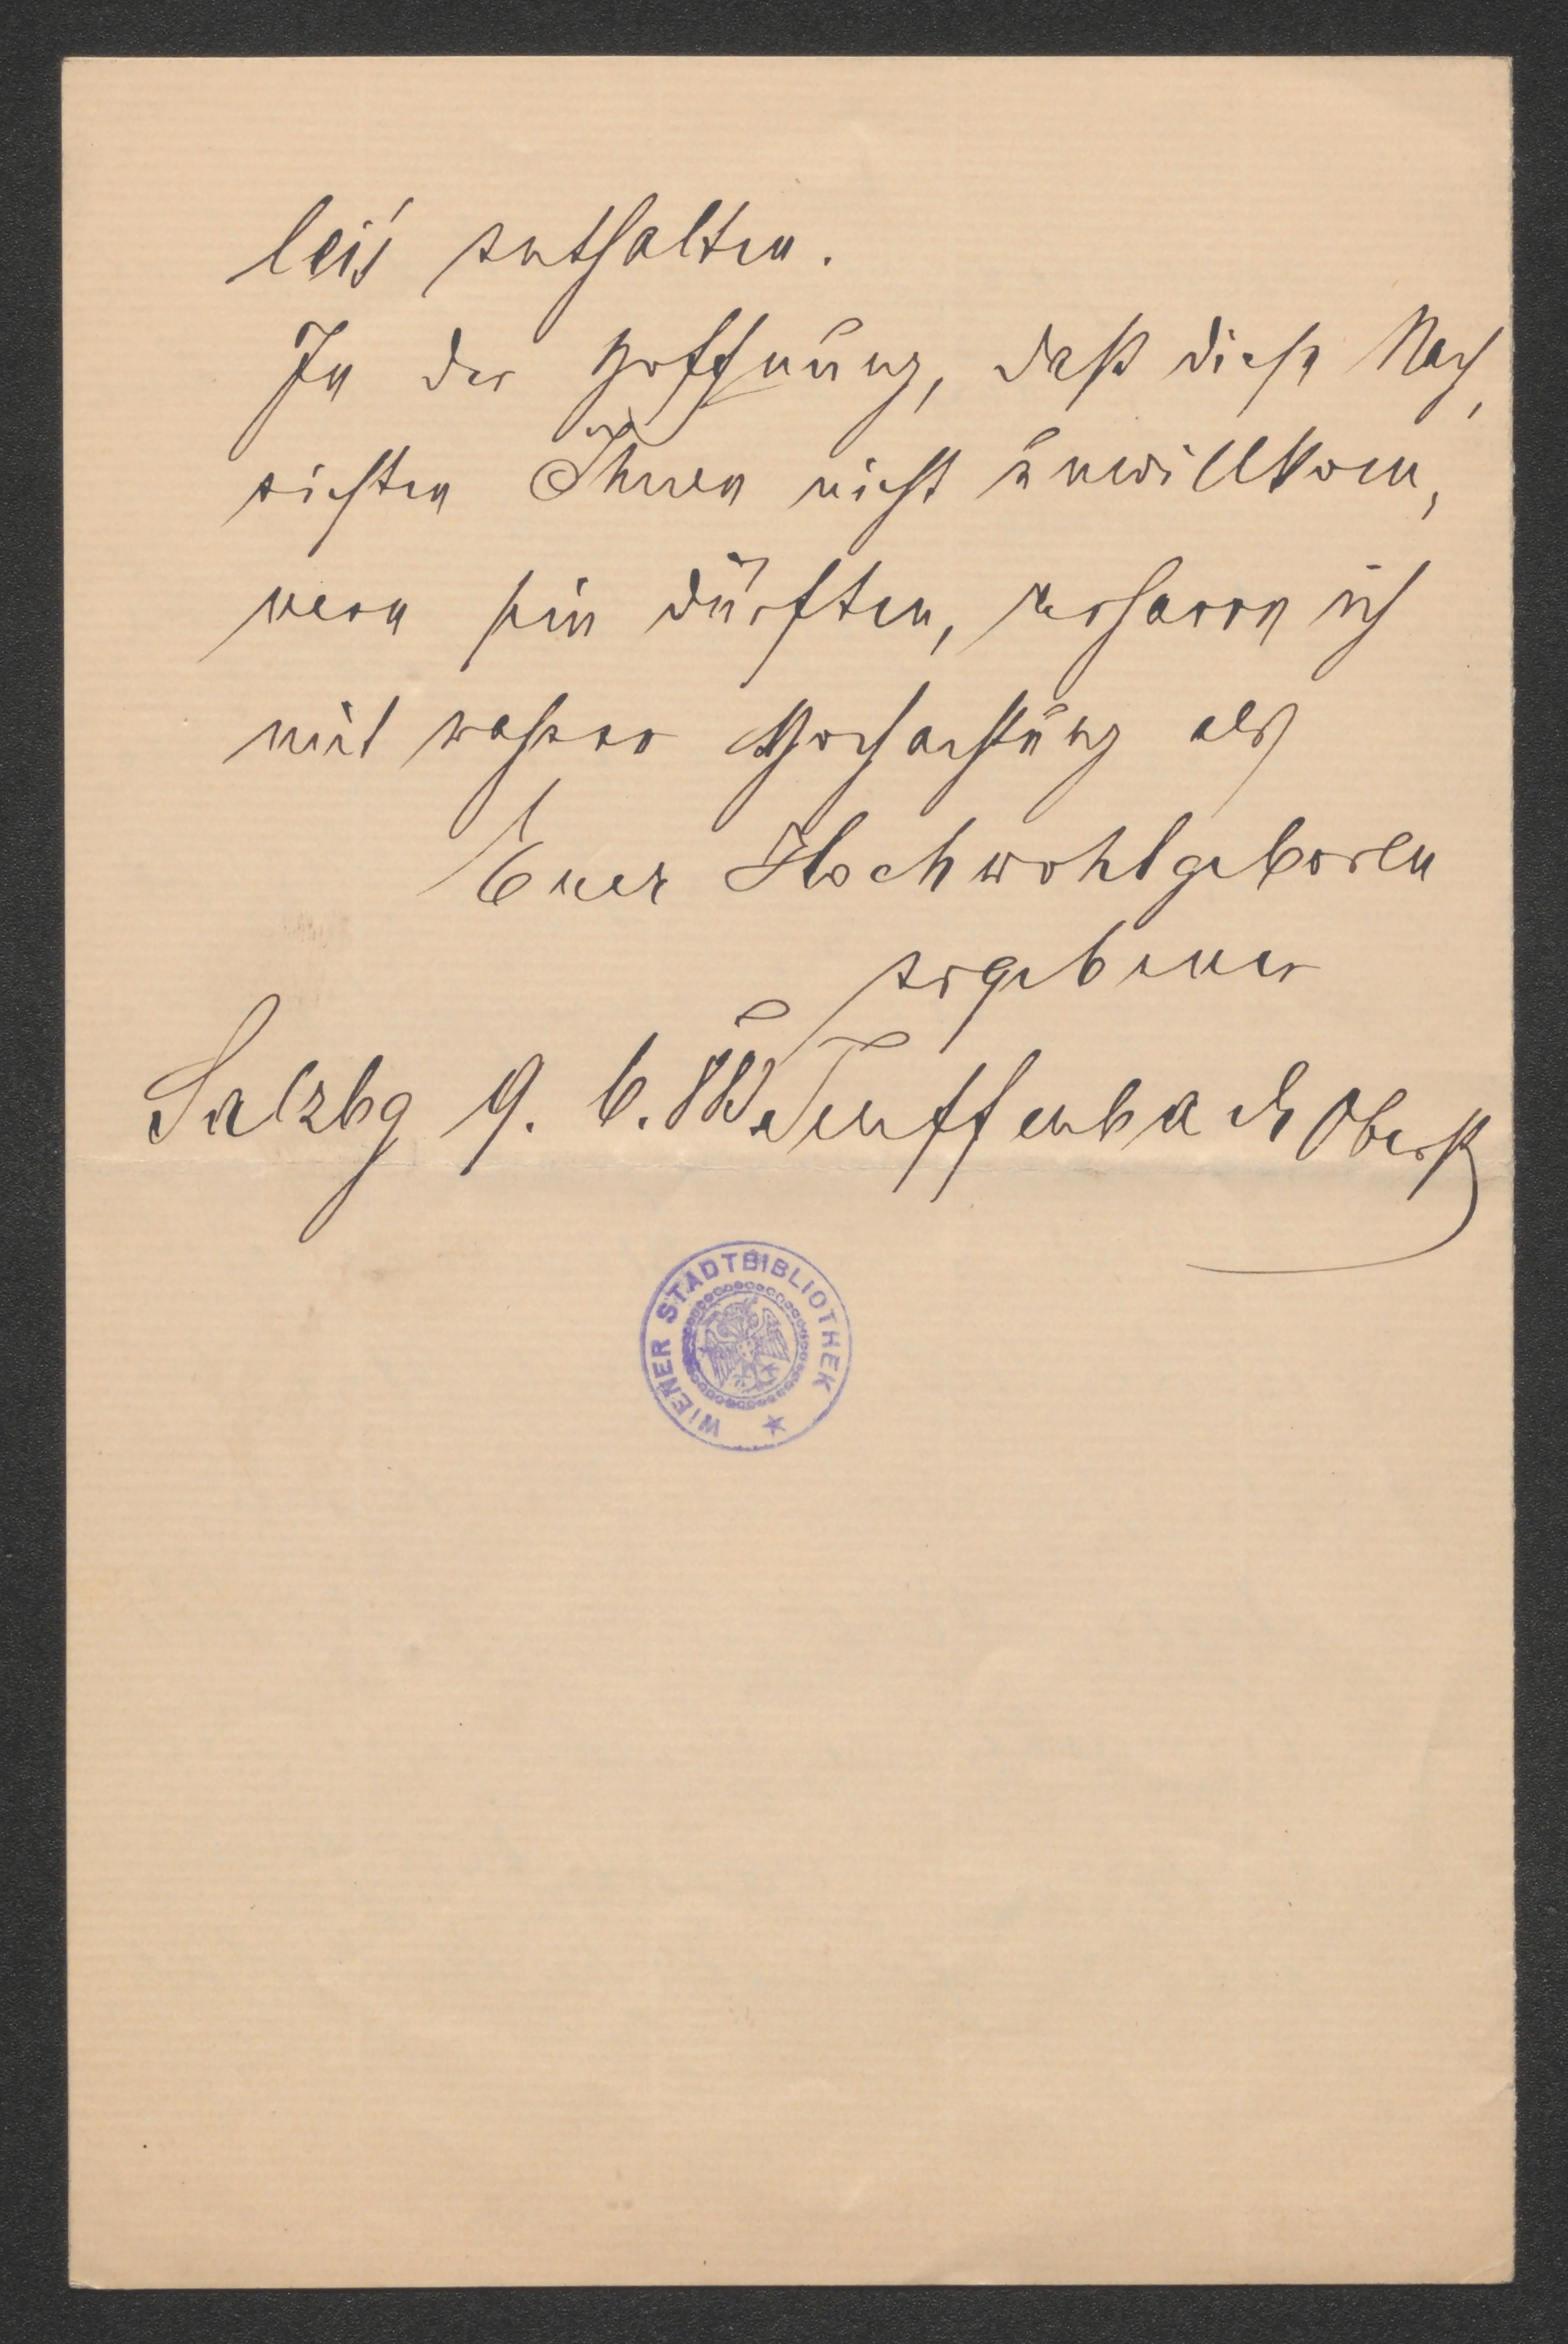 leis enthalten.
In der Hoffnung, daß diese Nach,
richten Ihnen nicht unwillkom,
mern sein dürften, verharre ich
mit wahrer Hochachtung als
Euer Hochwohlgeboren
ergebener
Salzbg 9. 6. 88. Teuffenbach Oberst
WIENER STADTBIBLIOTHEK